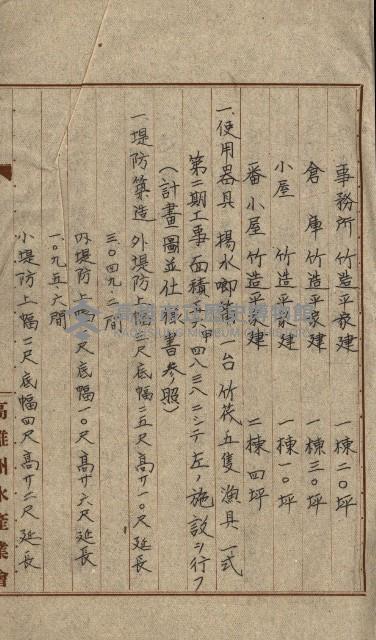 事務所 竹造平家建 一棟二〇坪
倉庫 竹造平家建 一棟三〇坪
小屋 竹造平家建 一棟一〇坪
番小屋 竹造平家建 二棟四坪
一、使用器具 揚水喞筒一台 竹筏五隻 漁具一式
第二期工事面積五甲四八三八ニシテ左ノ施設ヲ行フ
(計畫圖並仕 書参照)
一、堤防築造 外堤防上幅 尺底幅二五尺高サ一〇尺延長
三〇四九、二間
内堤防上幅四尺底幅一〇尺高サ六尺延長
一〇九五、六間
小堤防上幅二尺底幅四尺高サ二尺延長
高雄州水産業會